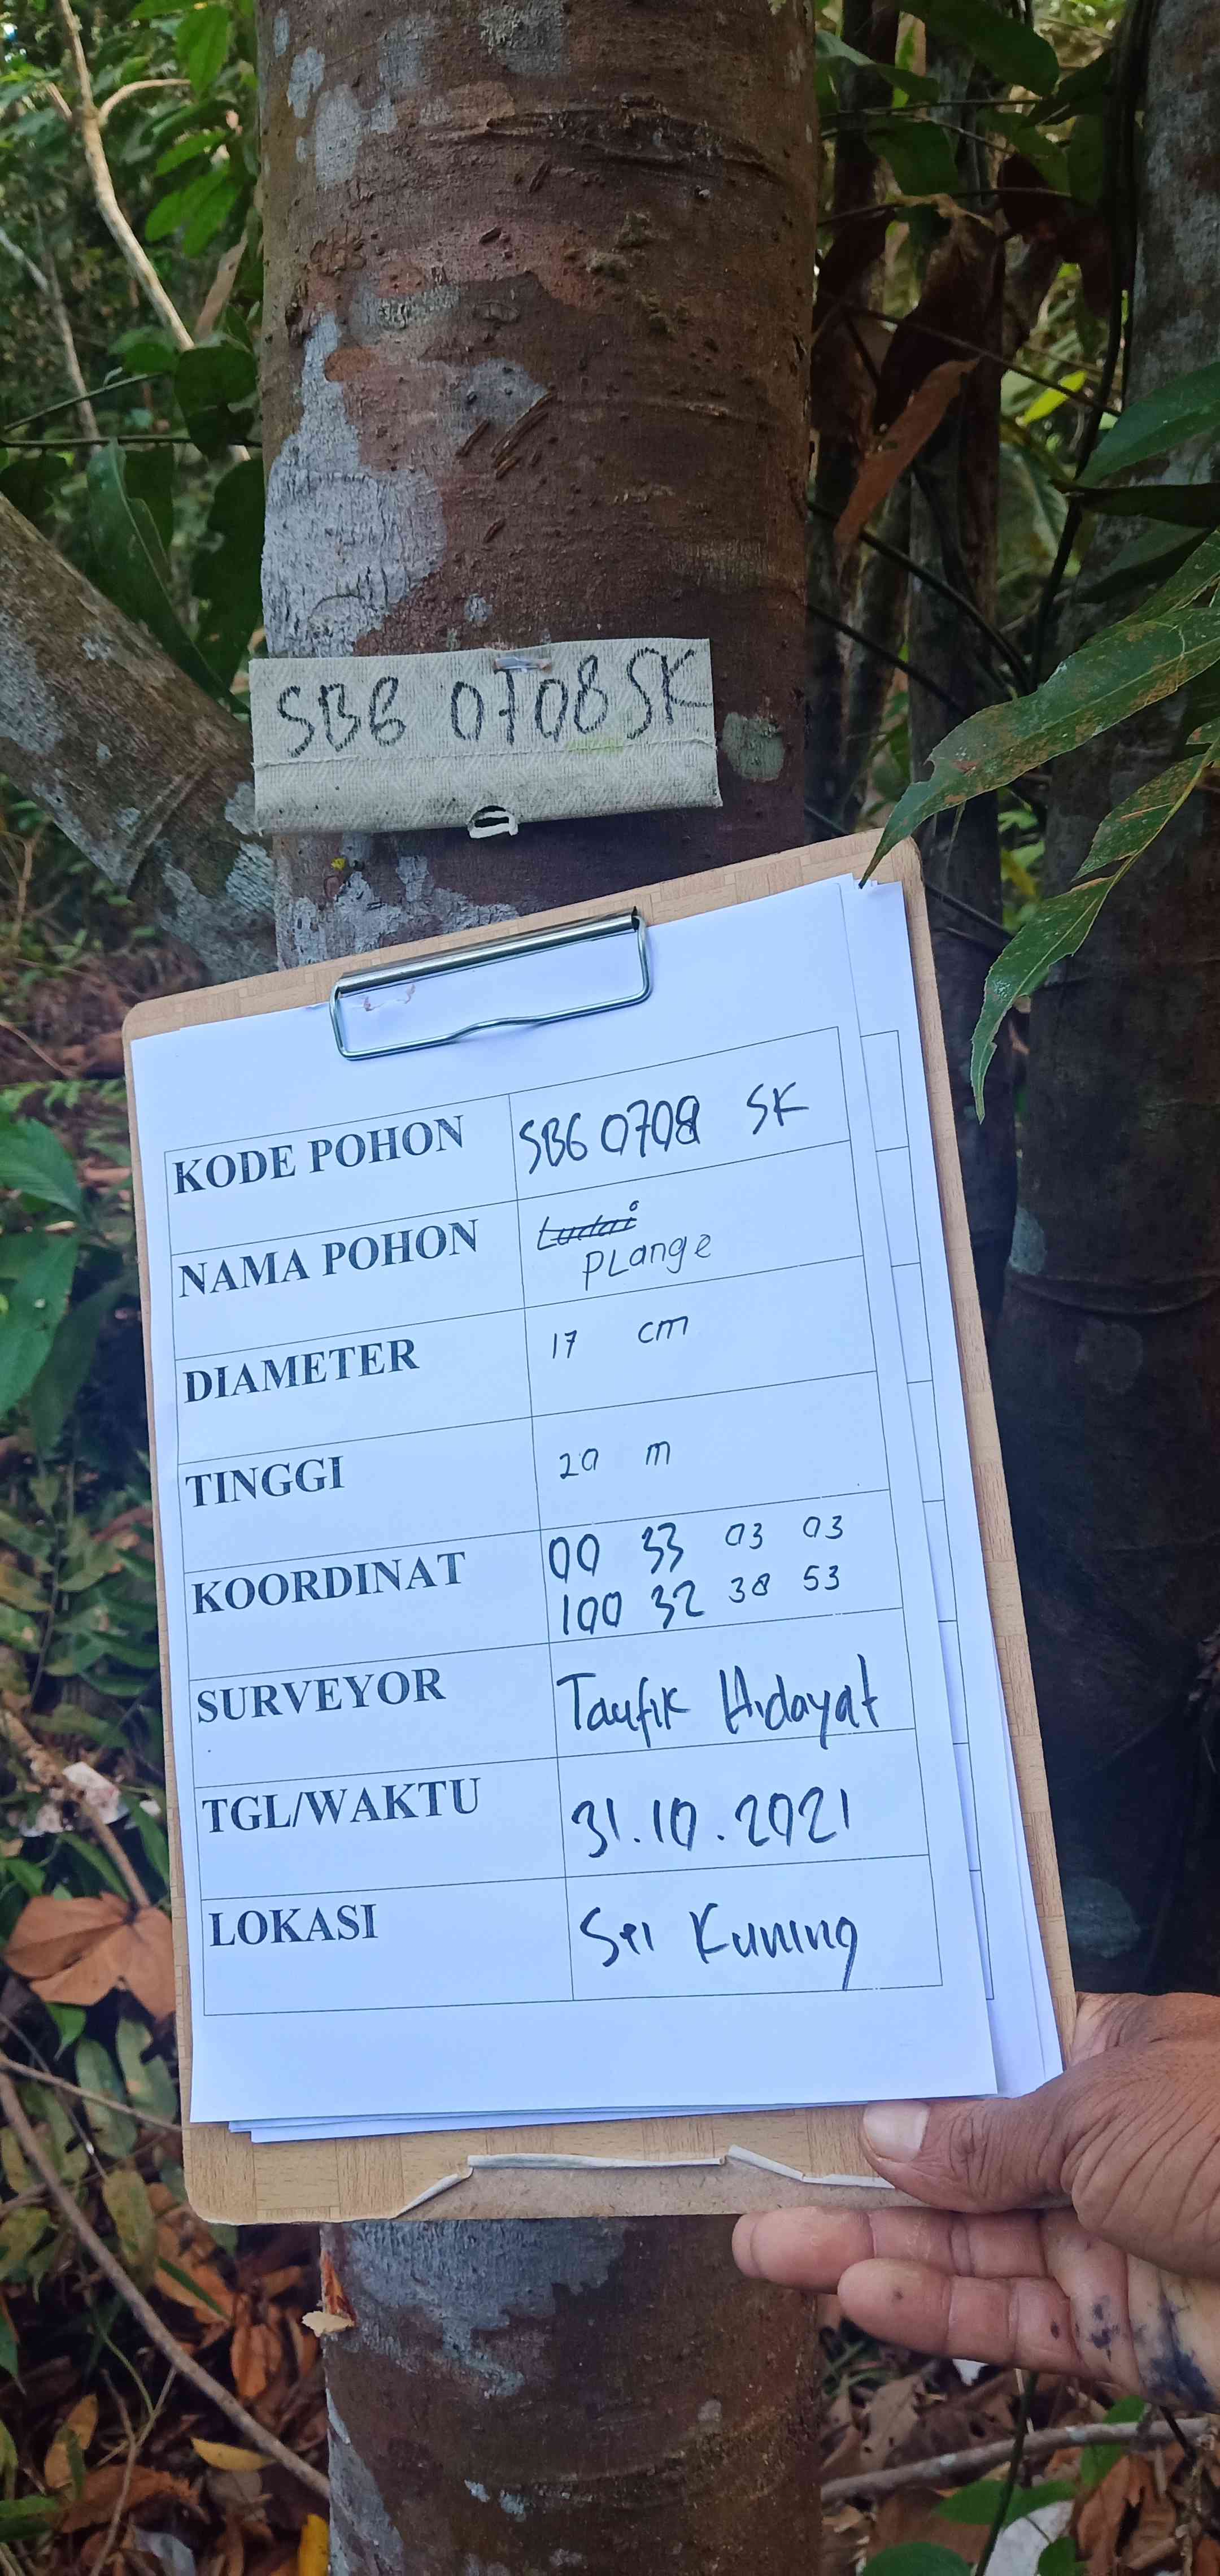 SBB 0708 SK
KODE POHON SBB 0708 SK
NAMA POHON Ludai
PLange
DIAMETER 17 cm
TINGGI 20 m
KOORDINAT 00 33 03 03
100 32 38 53
SURVEYOR Taufik Hidayat
TGL/WAKTU 31.10.2021
LOKASI Sri Kuning